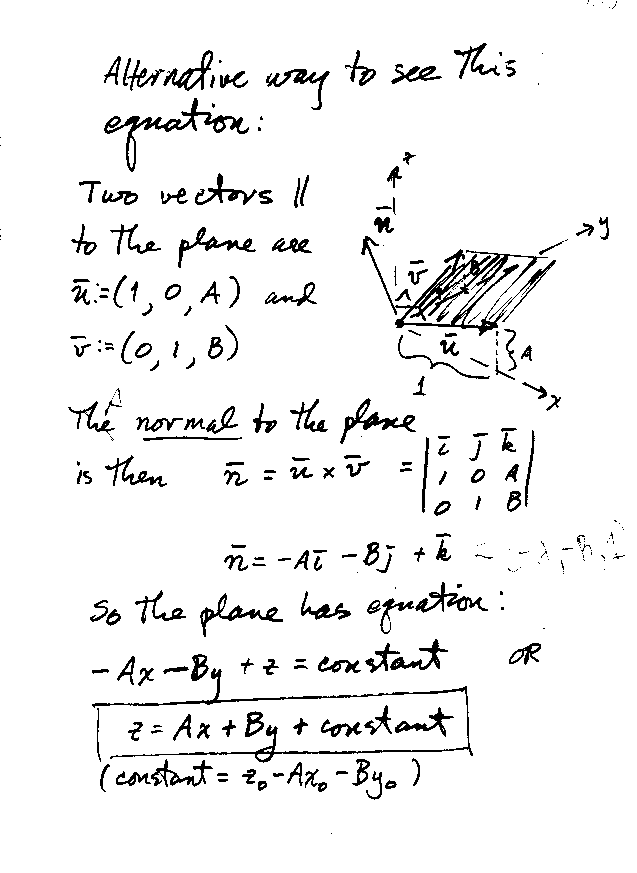 Alternative way to see this
equation:
Two vectors ||
to the plane are
ū:=(1, 0, A) and
v̄:=(0, 1, B)
z
n̄
y
v̄
B
1
ū
A
1
x
The normal to the plane
is then n̄ = ū × v̄ = | ī j̄ k̄ |
| 1 0 A |
| 0 1 B |
n̄ = -Aī - Bj̄ + k̄ = (-A, -B, 1)
So the plane has equation:
-Ax - By + z = constant OR
z = Ax + By + constant
(constant = z₀ - Ax₀ - By₀)